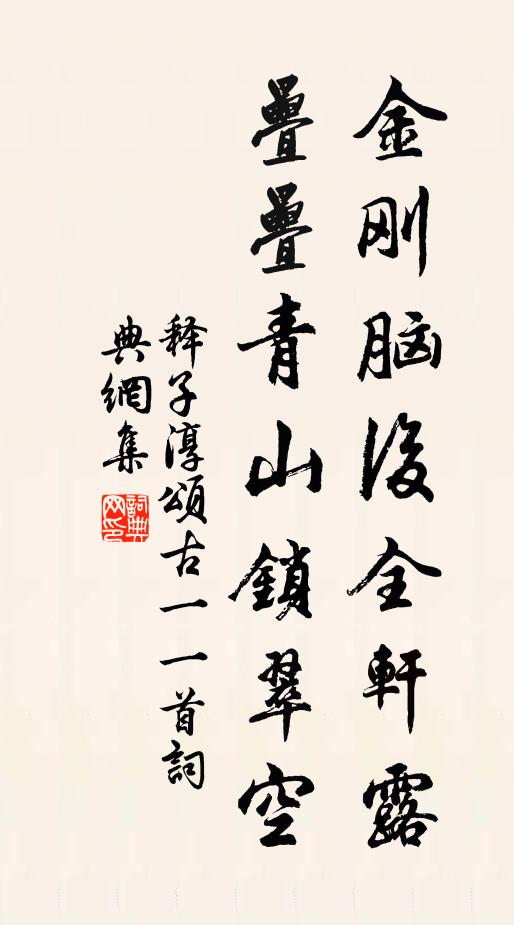 金刚脑後全軒露
疊疊青山鎖翠空
释子淳頌古一一首詞
典網集
詞典网印